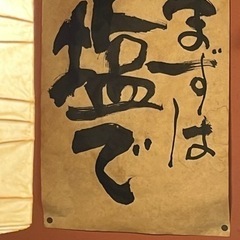 まずは
塩で